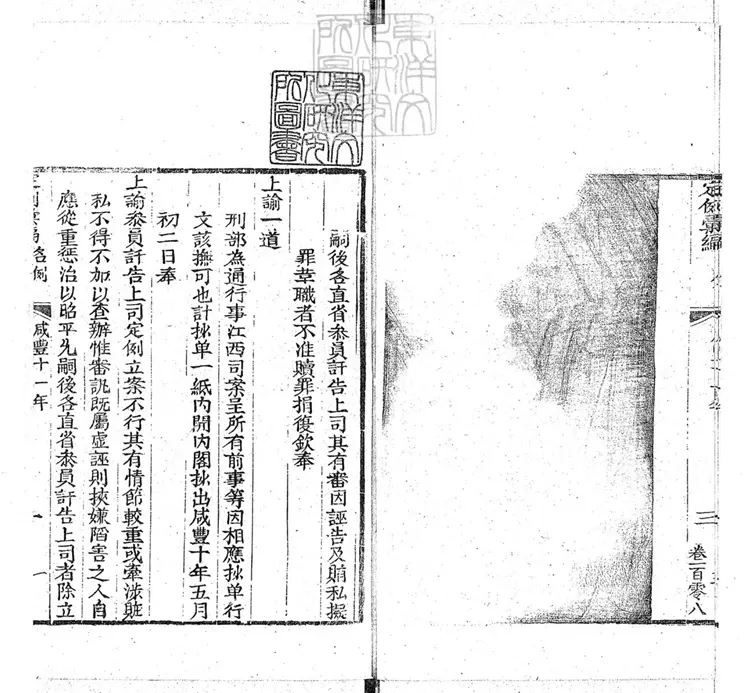 定例彙編
三
卷一百零八
東洋文
化研究
所圖書
嗣後各直省叅員訐告上司其有審因誣告及賄私擬
罪革職者不准贖罪捐復欽奉
上諭一道
刑部為通行事江西司案呈所有前事等因相應抄单行
文該撫可也計抄单一紙內開內閣抄出咸豐十年五月
初二日奉
上諭叅員訐告上司定例立案不行其有情節較重或牽涉贓
私不得不加以查辦惟審訊既屬虛誣則挾嫌陷害之人自
應從重懲治以昭平允嗣後各直省叅員訐告上司者除立
咸豐十一年
一